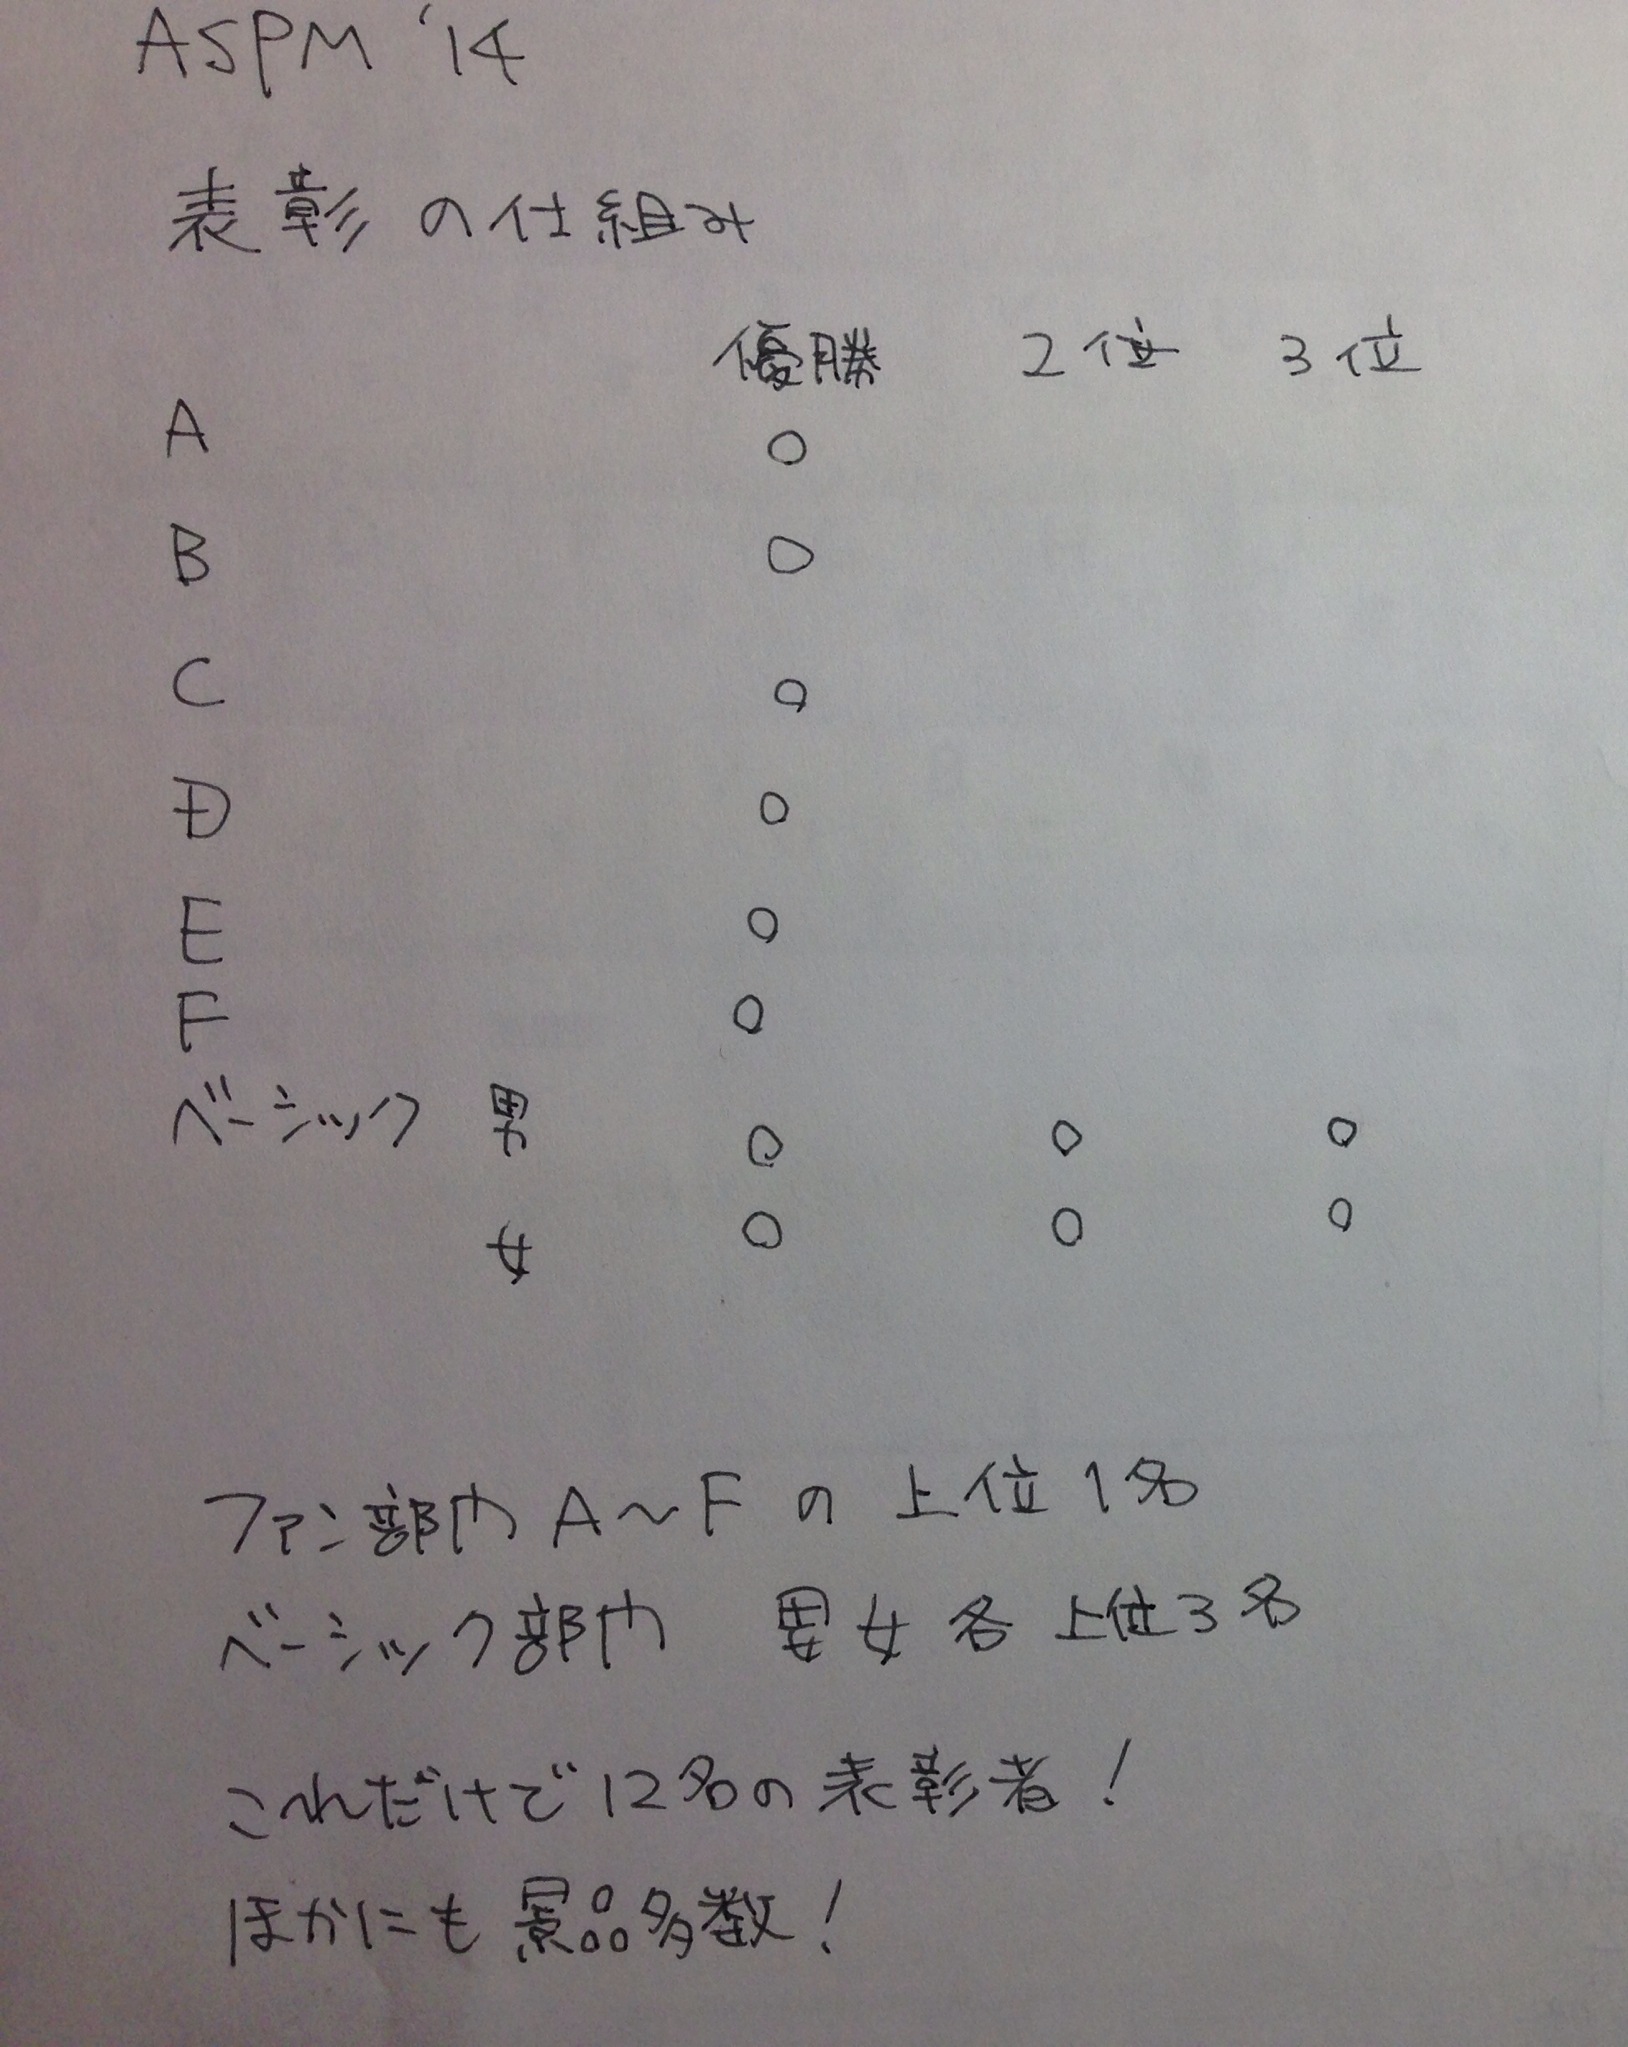 ASPM '14
表彰の仕組み
優勝 2位 3位
A ○
B ○
C ○
D ○
E ○
F ○
ベーシック 男 ○ ○ ○
女 ○ ○ ○
ファン部内 A〜F の 上位1名
ベーシック部内 男女 各 上位3名
これだけで12名の表彰者!
ほかにも景品多数!